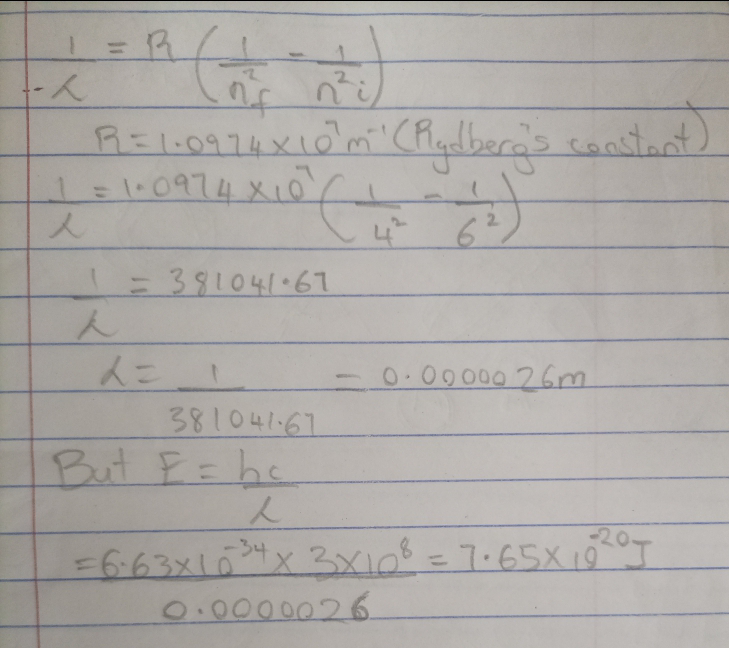 1/λ = R (1/n²f - 1/n²i)
R = 1.0974 × 10⁷ m⁻¹ (Rydberg's constant)
1/λ = 1.0974 × 10⁷ (1/4² - 1/6²)
1/λ = 381041.67
λ = 1/381041.67 = 0.0000026m
But E = hc/λ
= 6.63×10⁻³⁴ × 3×10⁸/0.0000026 = 7.65×10⁻²⁰J